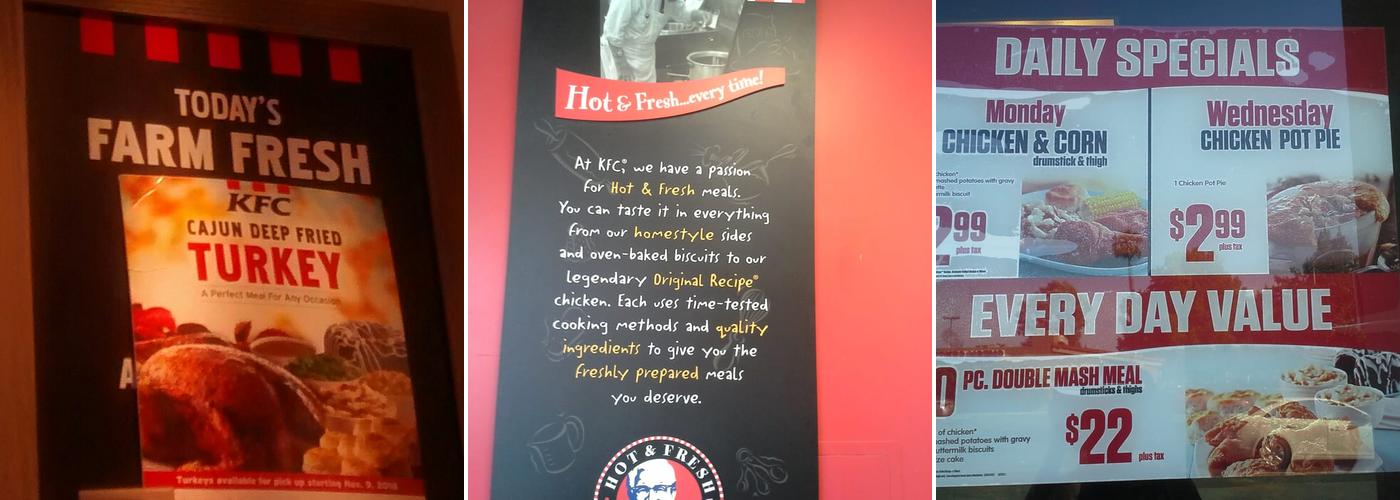 TODAY'S
FARM FRESH
KFC
CAJUN DEEP FRIED
TURKEY
A Perfect Meal For Any Occasion
A
Turkeys available for pick up starting Nov. 9, 2018
Hot & Fresh...every time!
At KFC®, we have a passion
for Hot & Fresh meals.
You can taste it in everything
from our homestyle sides
and oven-baked biscuits to our
legendary Original Recipe®
chicken. Each uses time-tested
cooking methods and quality
ingredients to give you the
freshly prepared meals
you deserve.
HOT & FRESH
DAILY SPECIALS
Monday
CHICKEN & CORN
drumstick & thigh
chicken*
mashed potatoes with gravy
biscuit
$2.99
plus tax
Wednesday
CHICKEN POT PIE
1 Chicken Pot Pie
$2.99
plus tax
EVERY DAY VALUE
0 PC. DOUBLE MASH MEAL
drumsticks & thighs
of chicken*
mashed potatoes with gravy
buttermilk biscuits
cake
$22
plus tax